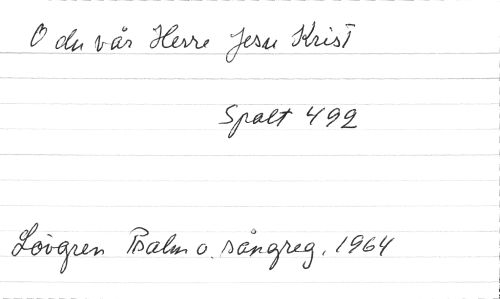 O du vår Herre Jesu Krist
Spalt 492
Lövgren Psalm o. sångreg. 1964